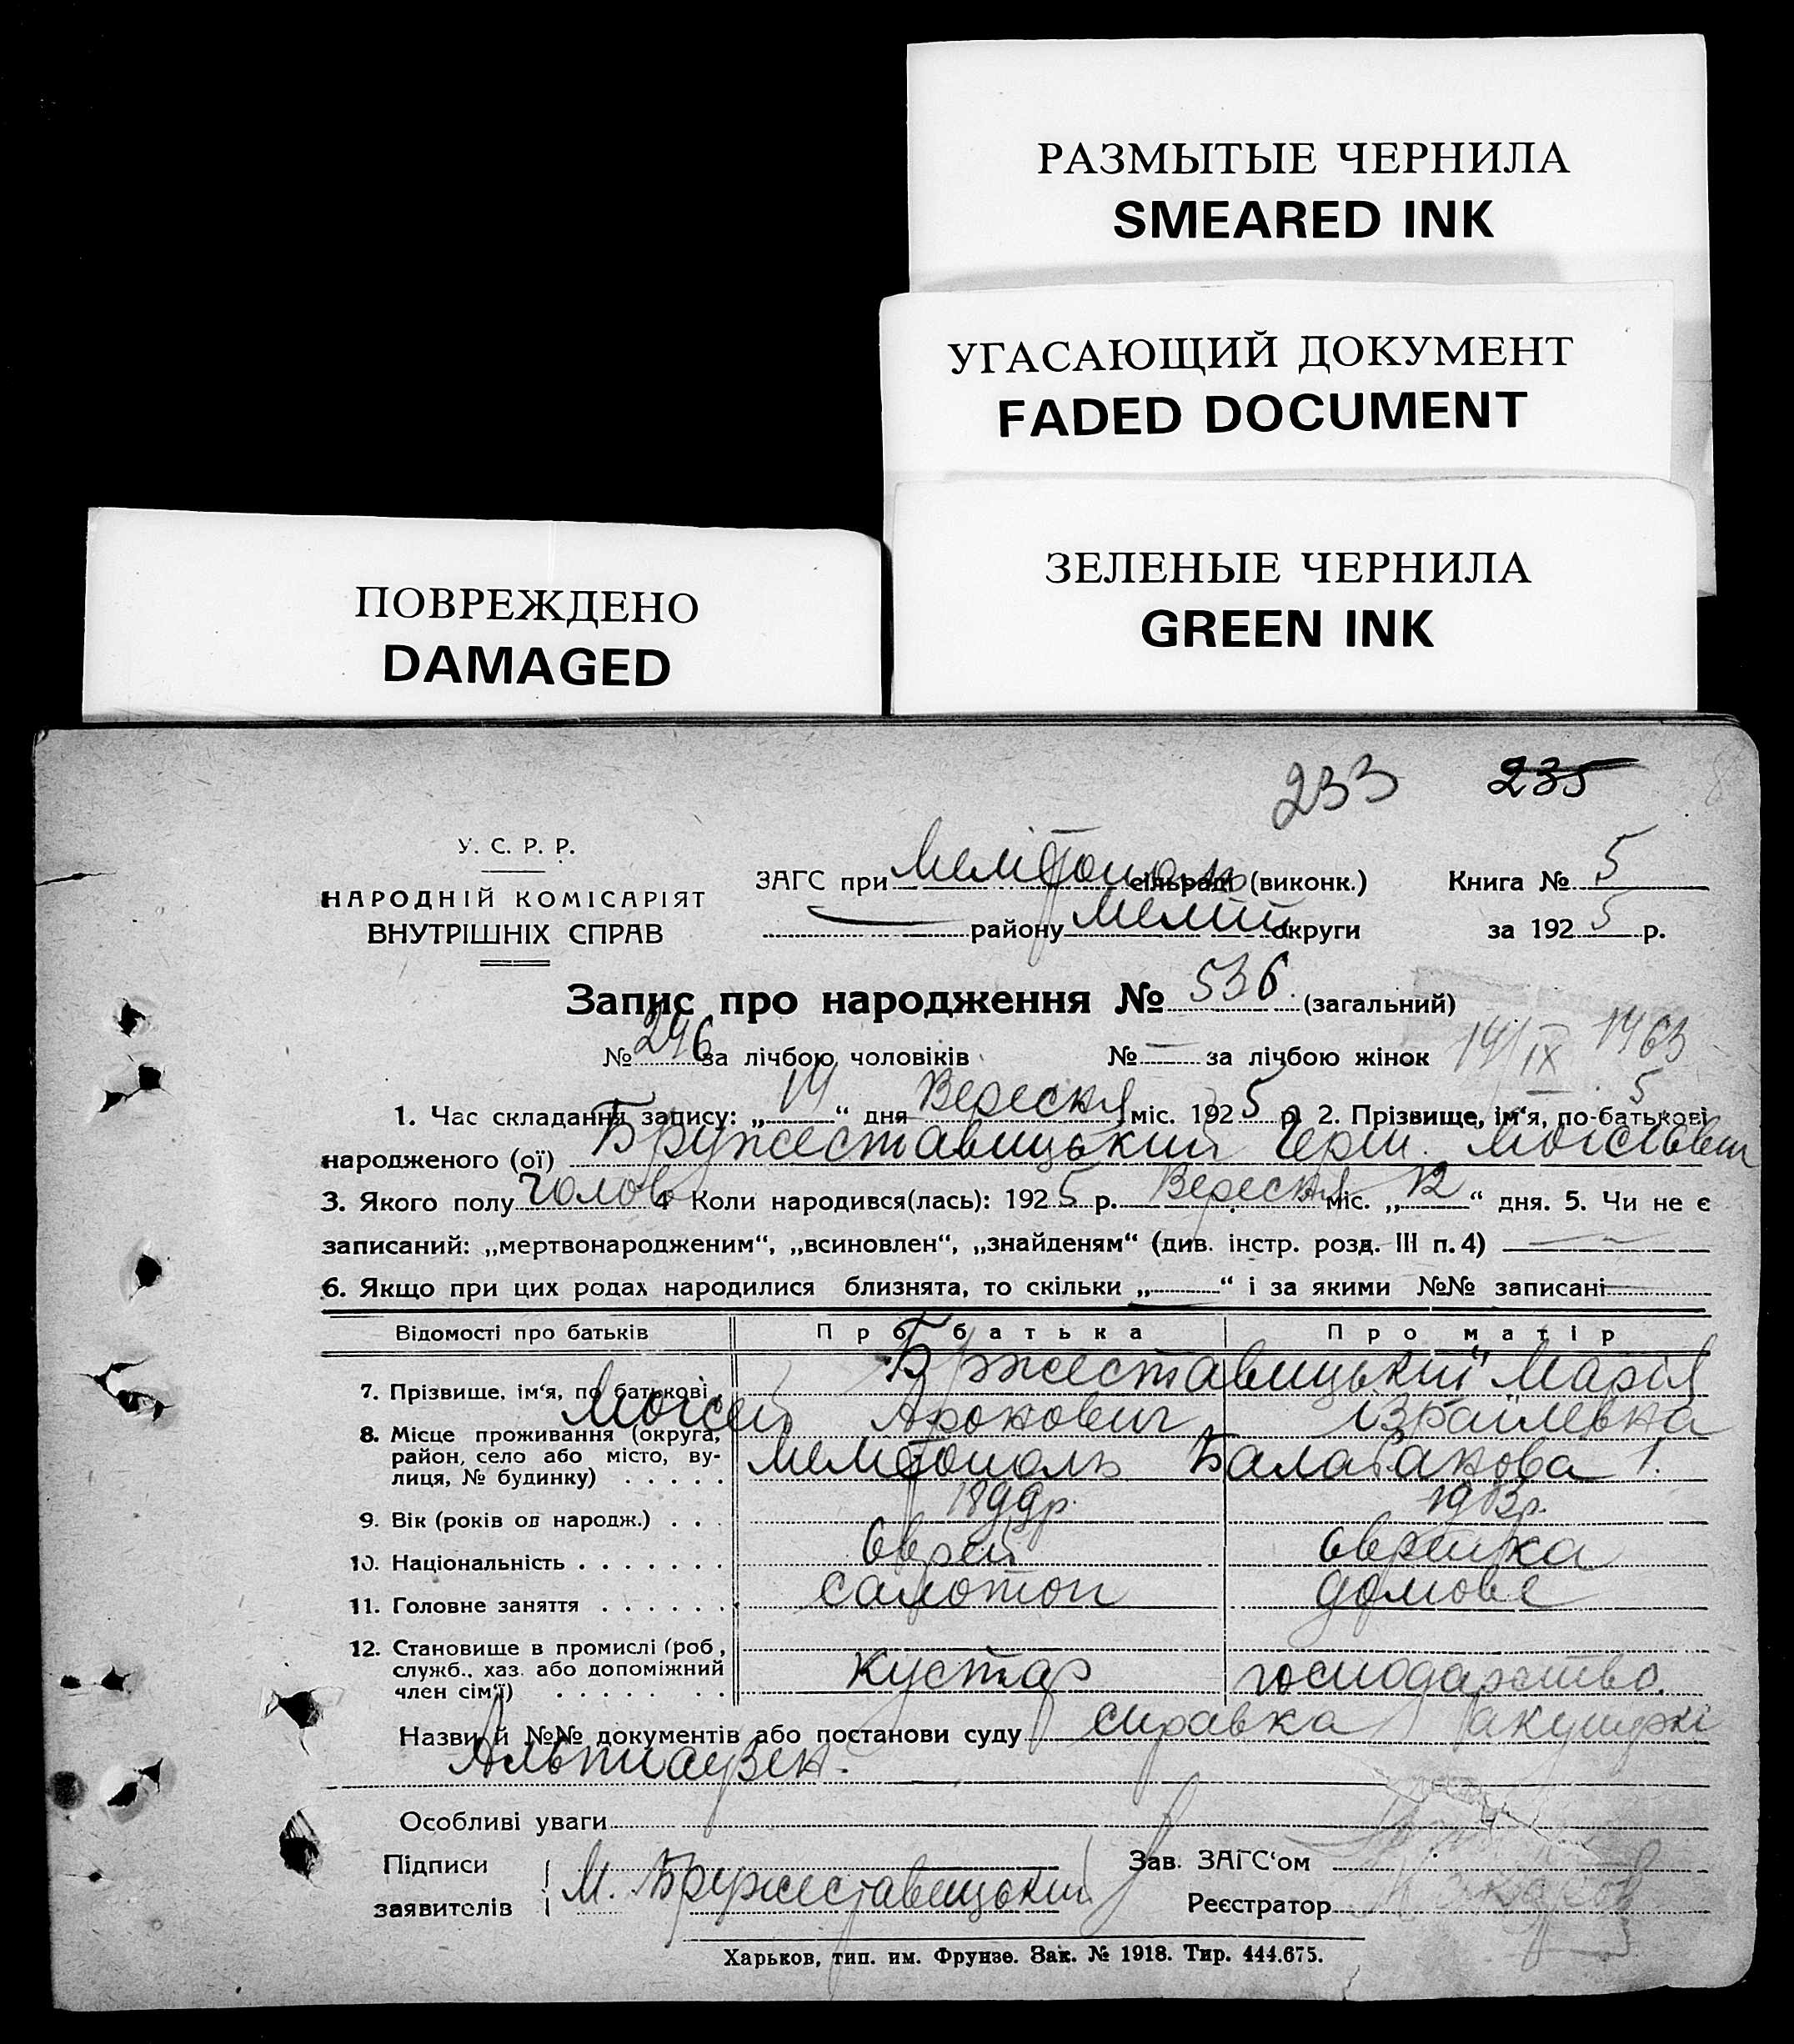 РАЗМЫТЫЕ ЧЕРНИЛА
SMEARED INK
УГАСАЮЩИЙ ДОКУМЕНТ
FADED DOCUMENT
ЗЕЛЕНЫЕ ЧЕРНИЛА
GREEN INK
ПОВРЕЖДЕНО
DAMAGED
233 235
У. С. Р. Р.
НАРОДНІЙ КОМІСАРІЯТ
ВНУТРІШНІХ СПРАВ
ЗАГС при Мелітополь сільраді (виконк.) Книга № 5
району Меліт округи за 1925 р.
Запис про народження № 536 (загальний)
№ 246 за лічбою чоловіків № — за лічбою жінок 14/IX 1963
1. Час складання запису: „14“ дня Вересня міс. 1925 р. 2. Прізвище, ім‘я, по-батькові
народженого (ої) Бружеставицький Герш. Мойсіевич
3. Якого полу Чолов 4 Коли народився(лась): 1925 р. Вересня міс. „12“ дня. 5. Чи не є
записаний: „мертвонародженим“, „всиновлен“, „знайденям“ (див. інстр. розд. III п. 4) —
6. Якщо при цих родах народилися близнята, то скільки „—“ і за якими №№ записані
Відомості про батьків Про батька Про матір
7. Прізвище, ім‘я, по батькові Бржеставицький Марія
Мойсей Аронович Ізраїлевна
8. Місце проживання (округа,
район, село або місто, ву-
лиця, № будинку) Мелітополь Балабанова 1.
9. Вік (років од народж.) 1899р. 1903р.
10. Національність Еврей Еврейка
11. Головне заняття салотоп домове
12. Становище в промислі (роб,
служб., хаз. або допоміжний
член сім‘ї) кустар господарство.
Назви й №№ документів або постанови суду справка акушеркі
Особливі уваги
Підписи
заявителів М. Бружеставицький
Зав. ЗАГС‘ом
Реєстратор
Харьков, тип. им. Фрунзе. Зак. № 1918. Тир. 444.675.